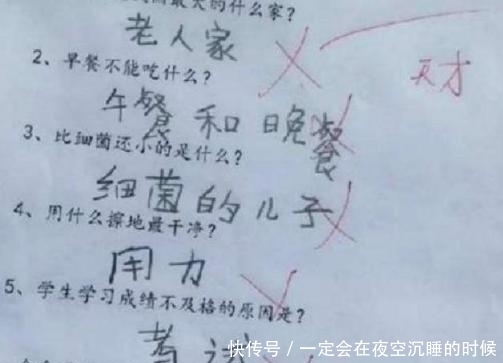 最大的什么家?
老人家
天才
2、早餐不能吃什么?
午餐和晚餐
3、比细菌还小的是什么?
细菌的儿子
4、用什么擦地最干净?
用力
5、学生学习成绩不及格的原因是?
考试
快传号/一定会在夜空沉睡的时候